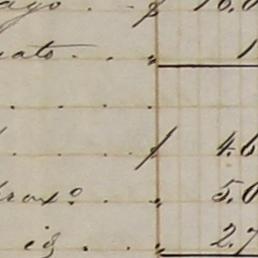 ago . . $ 16.0
uato . . . " 1
. . . . .
. . . . $ 4.6
rox.º . . . " 5.0
ig . . . " 2.7